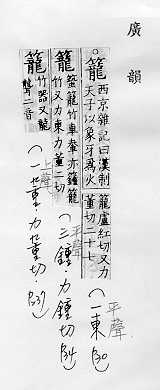 廣韻
籠 西京雜記曰漢制天子以象牙為火籠盧紅切又力董切二十七
平聲
(一東 P.30)
籠 䥥籠竹車軬亦籠𥴧竹又力東力董二切
平聲
(三鍾‧力鍾切 P.34)
籠 竹器又龍聾二音
上聲
(一董‧力董切‧P.237)